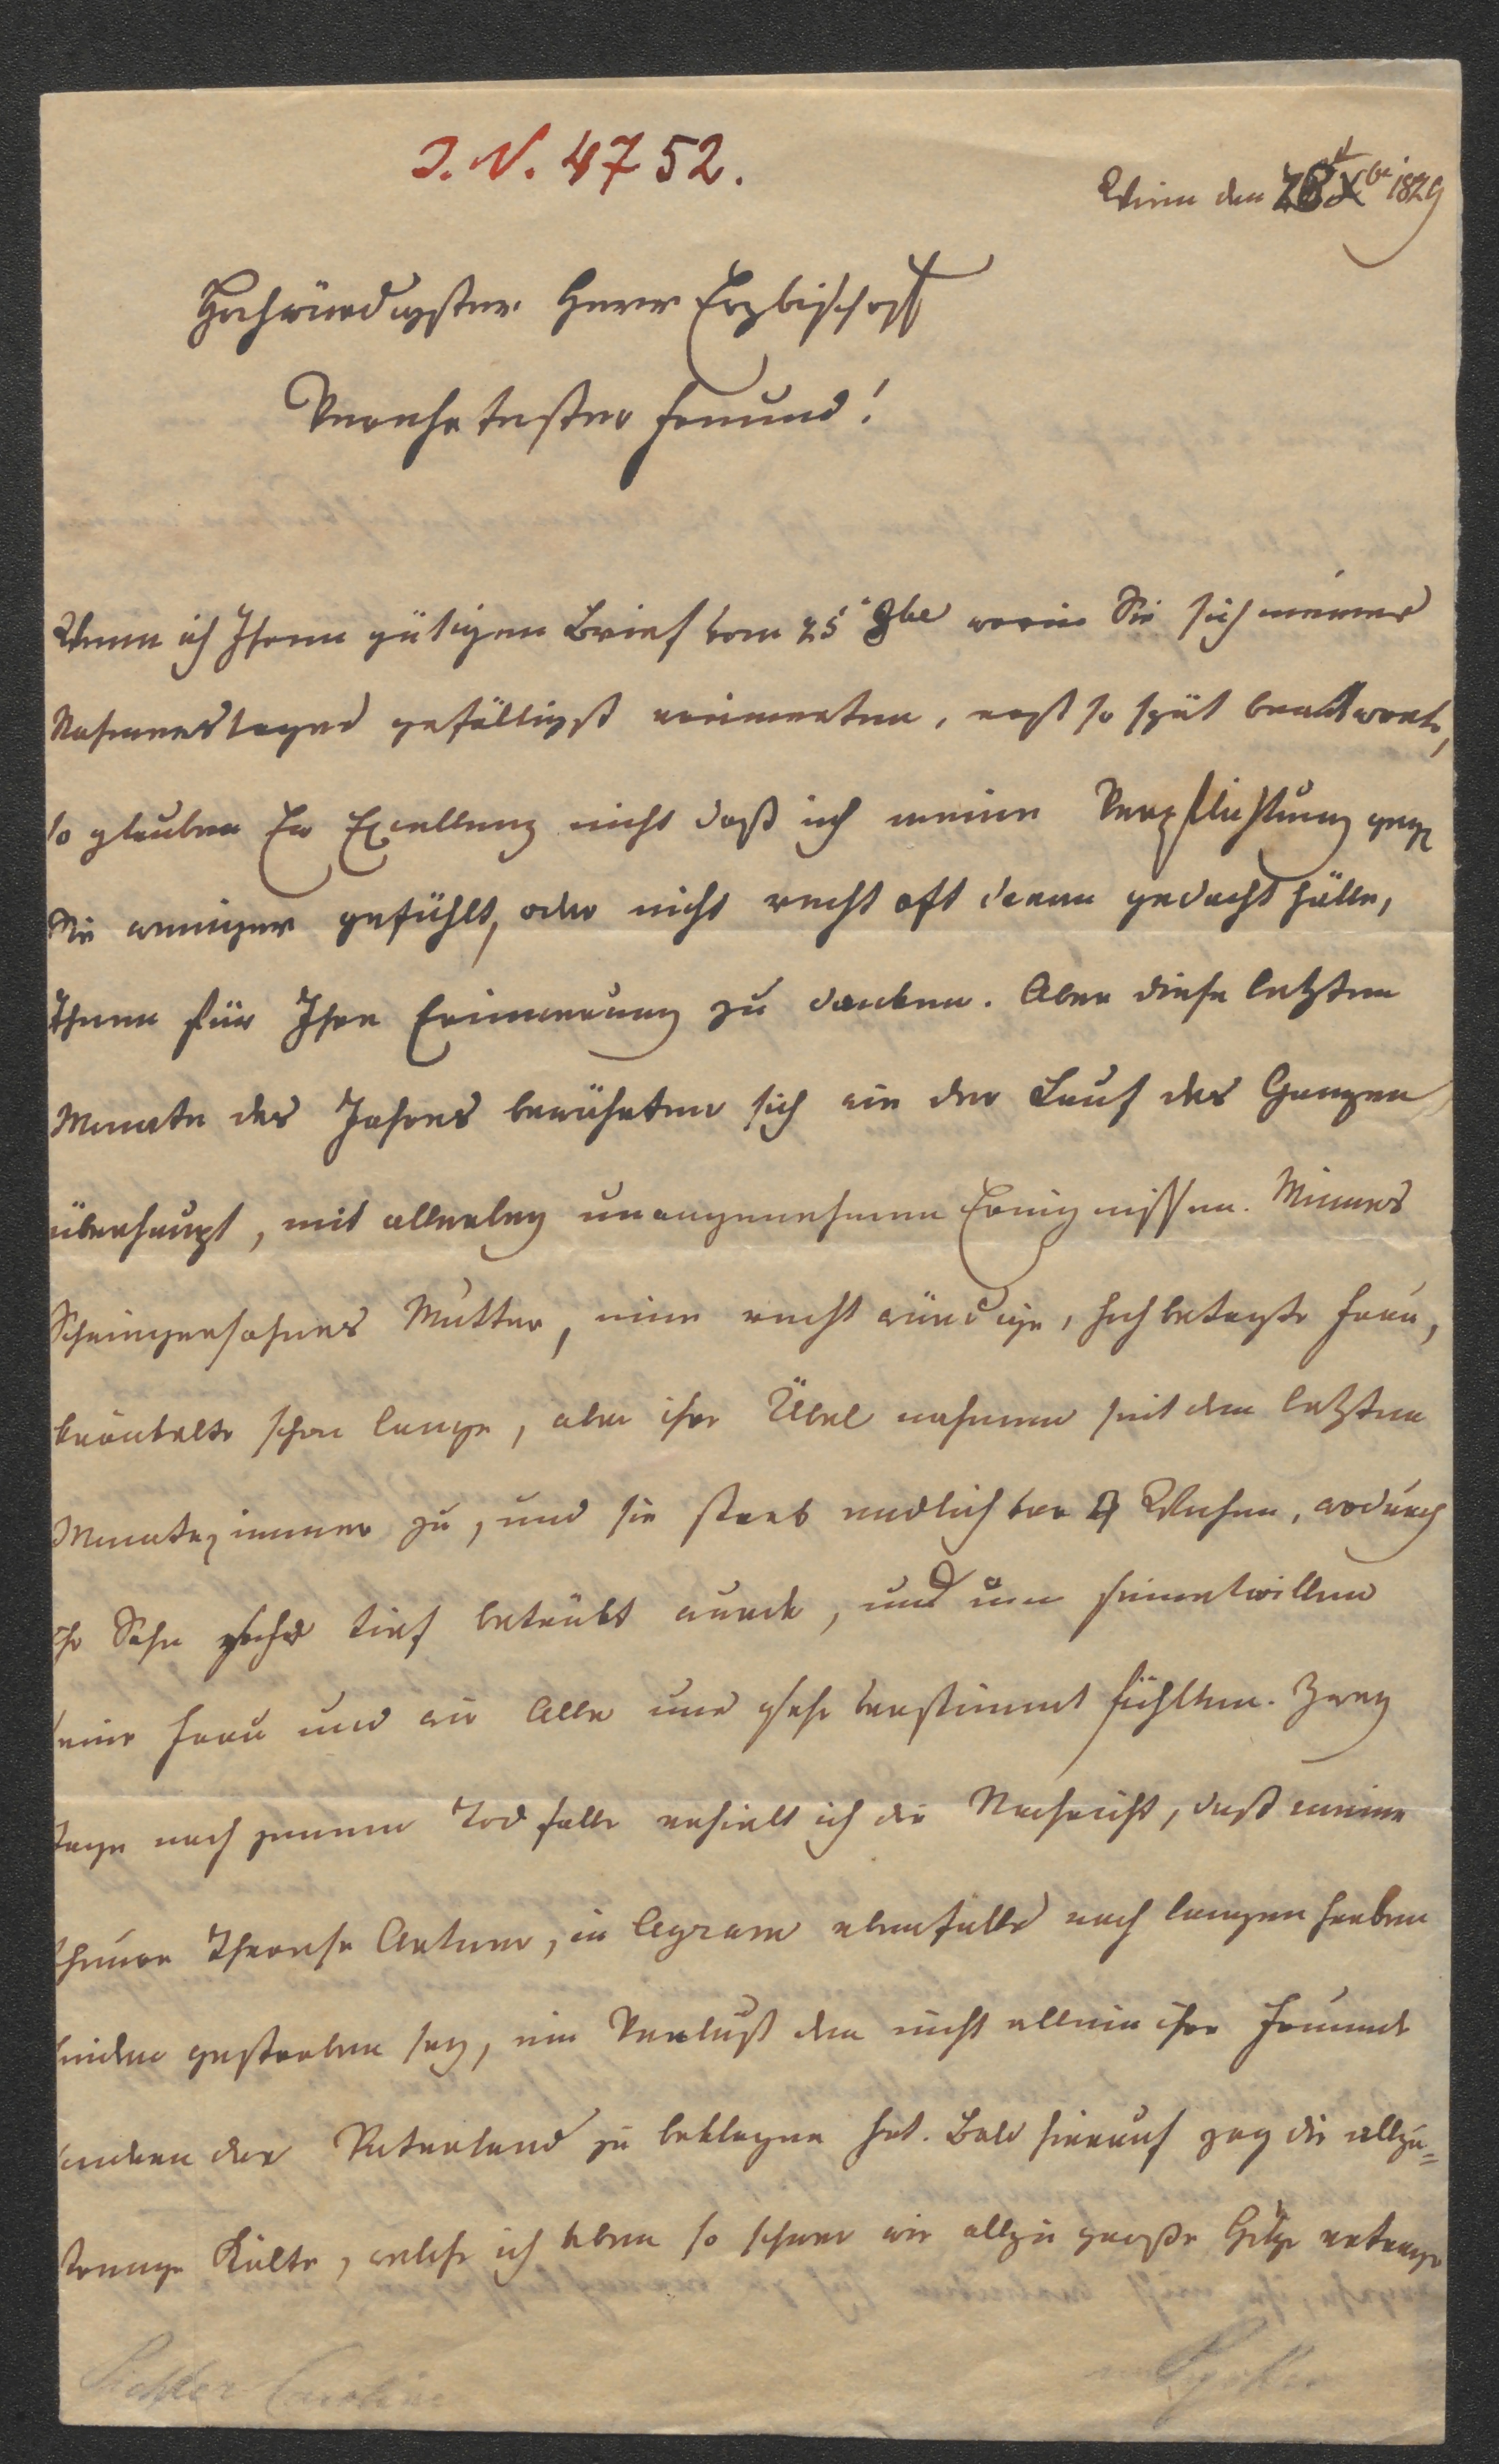 I. N. 4752.
Wien den 28t Xbr 1829
Hochwürdigster Herr Erzbischoff
Verehrtester Freund!
Wenn ich Ihren gütigen Brief vom 25t 8be worin Sie sich meines
Nahmenstages gefälligst erinnerten, erst so spät beantworte,
so glauben Ew Excellenz nicht daß ich meine Verpflichtung gegen
Sie weniger gefühlt, oder nicht recht oft daran gedacht hätte,
Ihnen für Ihre Erinnerung zu danken. Aber diese letzten
Monate des Jahres bewährten sich wie der Lauf des Ganzen
überhaupt, mit allerley unangenehmen Ereignissen. Meines
Schwiegersohnes Mutter, eine recht würdige, hochbetagte Frau,
kränkelte schon lange, aber ihre Übel nahmen seit den letzten
Monaten immer zu, und sie starb endlich vor Wochen, wodurch
ihr Sohn sehr tief betrübt wurde, und um seinetwillen
seine Frau und wir Alle uns sehr verstimmt fühlten. Zwey
Tage nach jenem Todfalle erhielt ich die Nachricht, daß meine
theure Therese Artner, in Agram ebenfalls nach langen herben
Leiden gestorben sey, ein Verlust den nicht allein ihre Freunde
sondern das Vaterland zu beklagen hat. Bald hierauf zog die allzu=
strenge Kälte, welche ich eben so schwer wie allzu große Hitze ertrage
Pichler Caroline